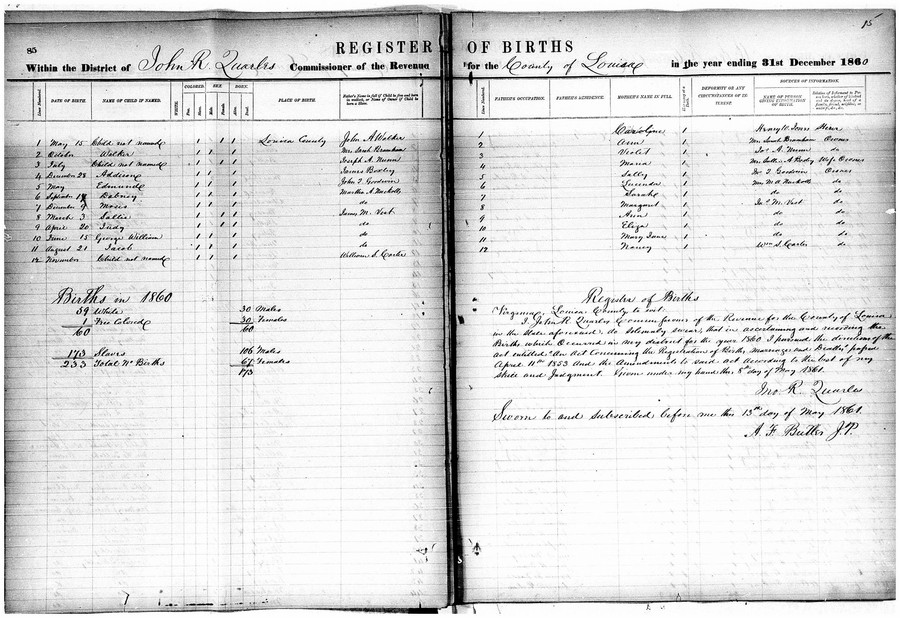 85
15
REGISTER OF BIRTHS
Within the District of John R. Quarles Commissioner of the Revenue for the County of Louisa in the year ending 31st December 1860
Line Numbered.
DATE OF BIRTH.
NAME OF CHILD IF NAMED.
WHITE
COLORED
Free. Slave.
SEX
Male. Female.
BORN.
Alive. Dead.
PLACE OF BIRTH.
Father's Name in full if Child be free and born in wedlock, or Name of Owner if Child be born a Slave.
Line Numbered.
FATHER'S OCCUPATION.
FATHER'S RESIDENCE.
MOTHER'S NAME IN FULL.
DEFORMITY OR ANY CIRCUMSTANCES OF INTEREST
SOURCES OF INFORMATION.
NAME OF PERSON GIVING INFORMATION OF BIRTH.
1 May 15 Child not named 1 1 1 Louisa County John A Walker 1 Caroline 1
2 October Walker 1 1 1 Mrs Sarah Branham 2 Ann 1 Mrs Sarah Branham Owner
3 July Child not named 1 1 1 Joseph A. Nunn 3 Violet 1 Jos A. Nunn do
4 December 28 Addison 1 1 1 James Boxley 4 Maria 1
5 May Edmund 1 1 1 John T. Goodwin 5 Sally 1 Jno T Goodwin Owner
6 September Dabney 1 1 1 Martha A 6 Lucinda 1 do
7 December 9 Moses 1 1 1 do 7 Sarah 1 do do
8 March 3 Sallie 1 1 1 James M. Vest 8 Margaret 1 Jas M. Vest do
9 April 20 Judy 1 1 1 do 9 Ann 1 do do
10 June 15 George William 1 1 1 do 10 Eliza 1 do do
11 August 21 Jacob 1 1 1 do 11 Mary Jane 1 do do
12 November Child not named 1 1 1 William S. Carter 12 Nancy 1 Wm S. Carter do
Births in 1860
59 White 30 Males
1 Free Colored 30 Females
60 60
173 Slaves 106 Males
233 Total No Births 67 Females
173
Register of Births
Virginia, Louisa County to wit:
I John R Quarles Commissioner of the Revenue for the County of Louisa
in the State aforesaid do solemnly swear, that in ascertaining and recording the
Births which Occurred in my district for the year 1860 I pursued the directions of the
act entitled "An Act Concerning the Registration of Births, marriages and Deaths" passed
April 11th 1853 and the Amendments to said act according to the best of my
Skill and Judgment. Given under my hand this 8th day of May 1861.
Jno R. Quarles
Sworn to and subscribed before me this 13th day of May 1861.
A. F. Butler J.P.